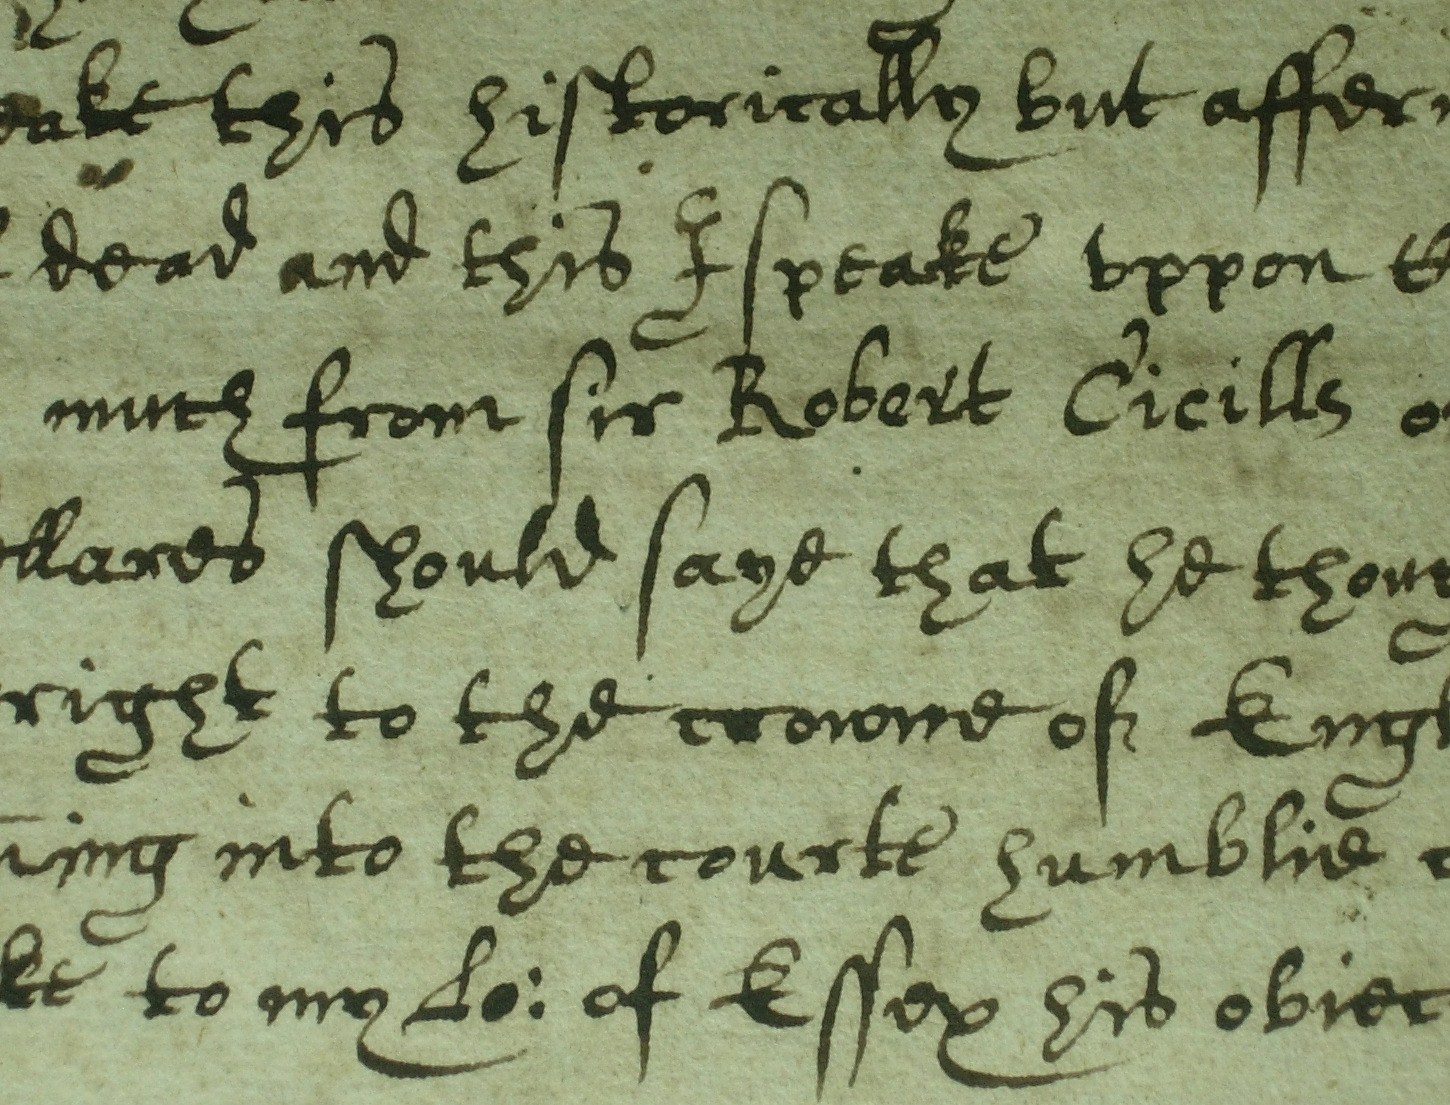 eake this historically but affer
dead and this I speake vppon
much from sir Robert Cicills
llares should saye that he thoug
right to the crowne of Engl
ing into the courte humblie
ke to my Lo: of Essex his obiec